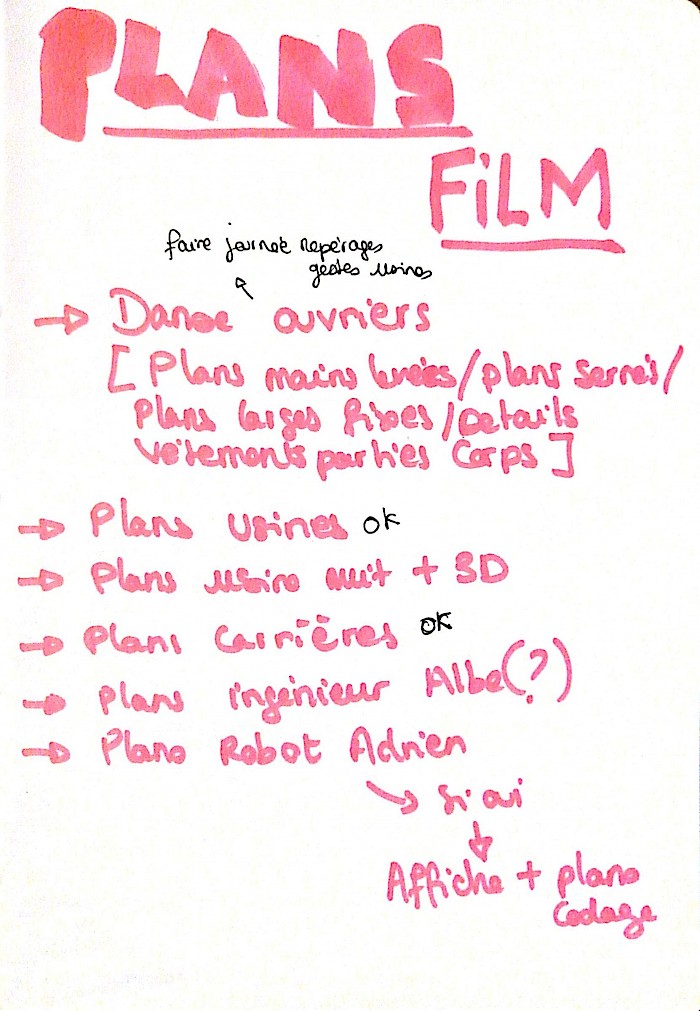 PLANS
FiLM
faire journée repérages
gestes usines
→ Danse ouvriers
[Plans mains levées/plans serrés/
Plans larges fixes/Détails
vêtements parties Corps]
→ Plans usines ok
→ Plans usine nuit + 3D
→ Plans Carrières ok
→ Plans ingénieur Albe(?)
→ Plans Robot Adrien
↘ Si oui
↓
Affiche + plans
Codage